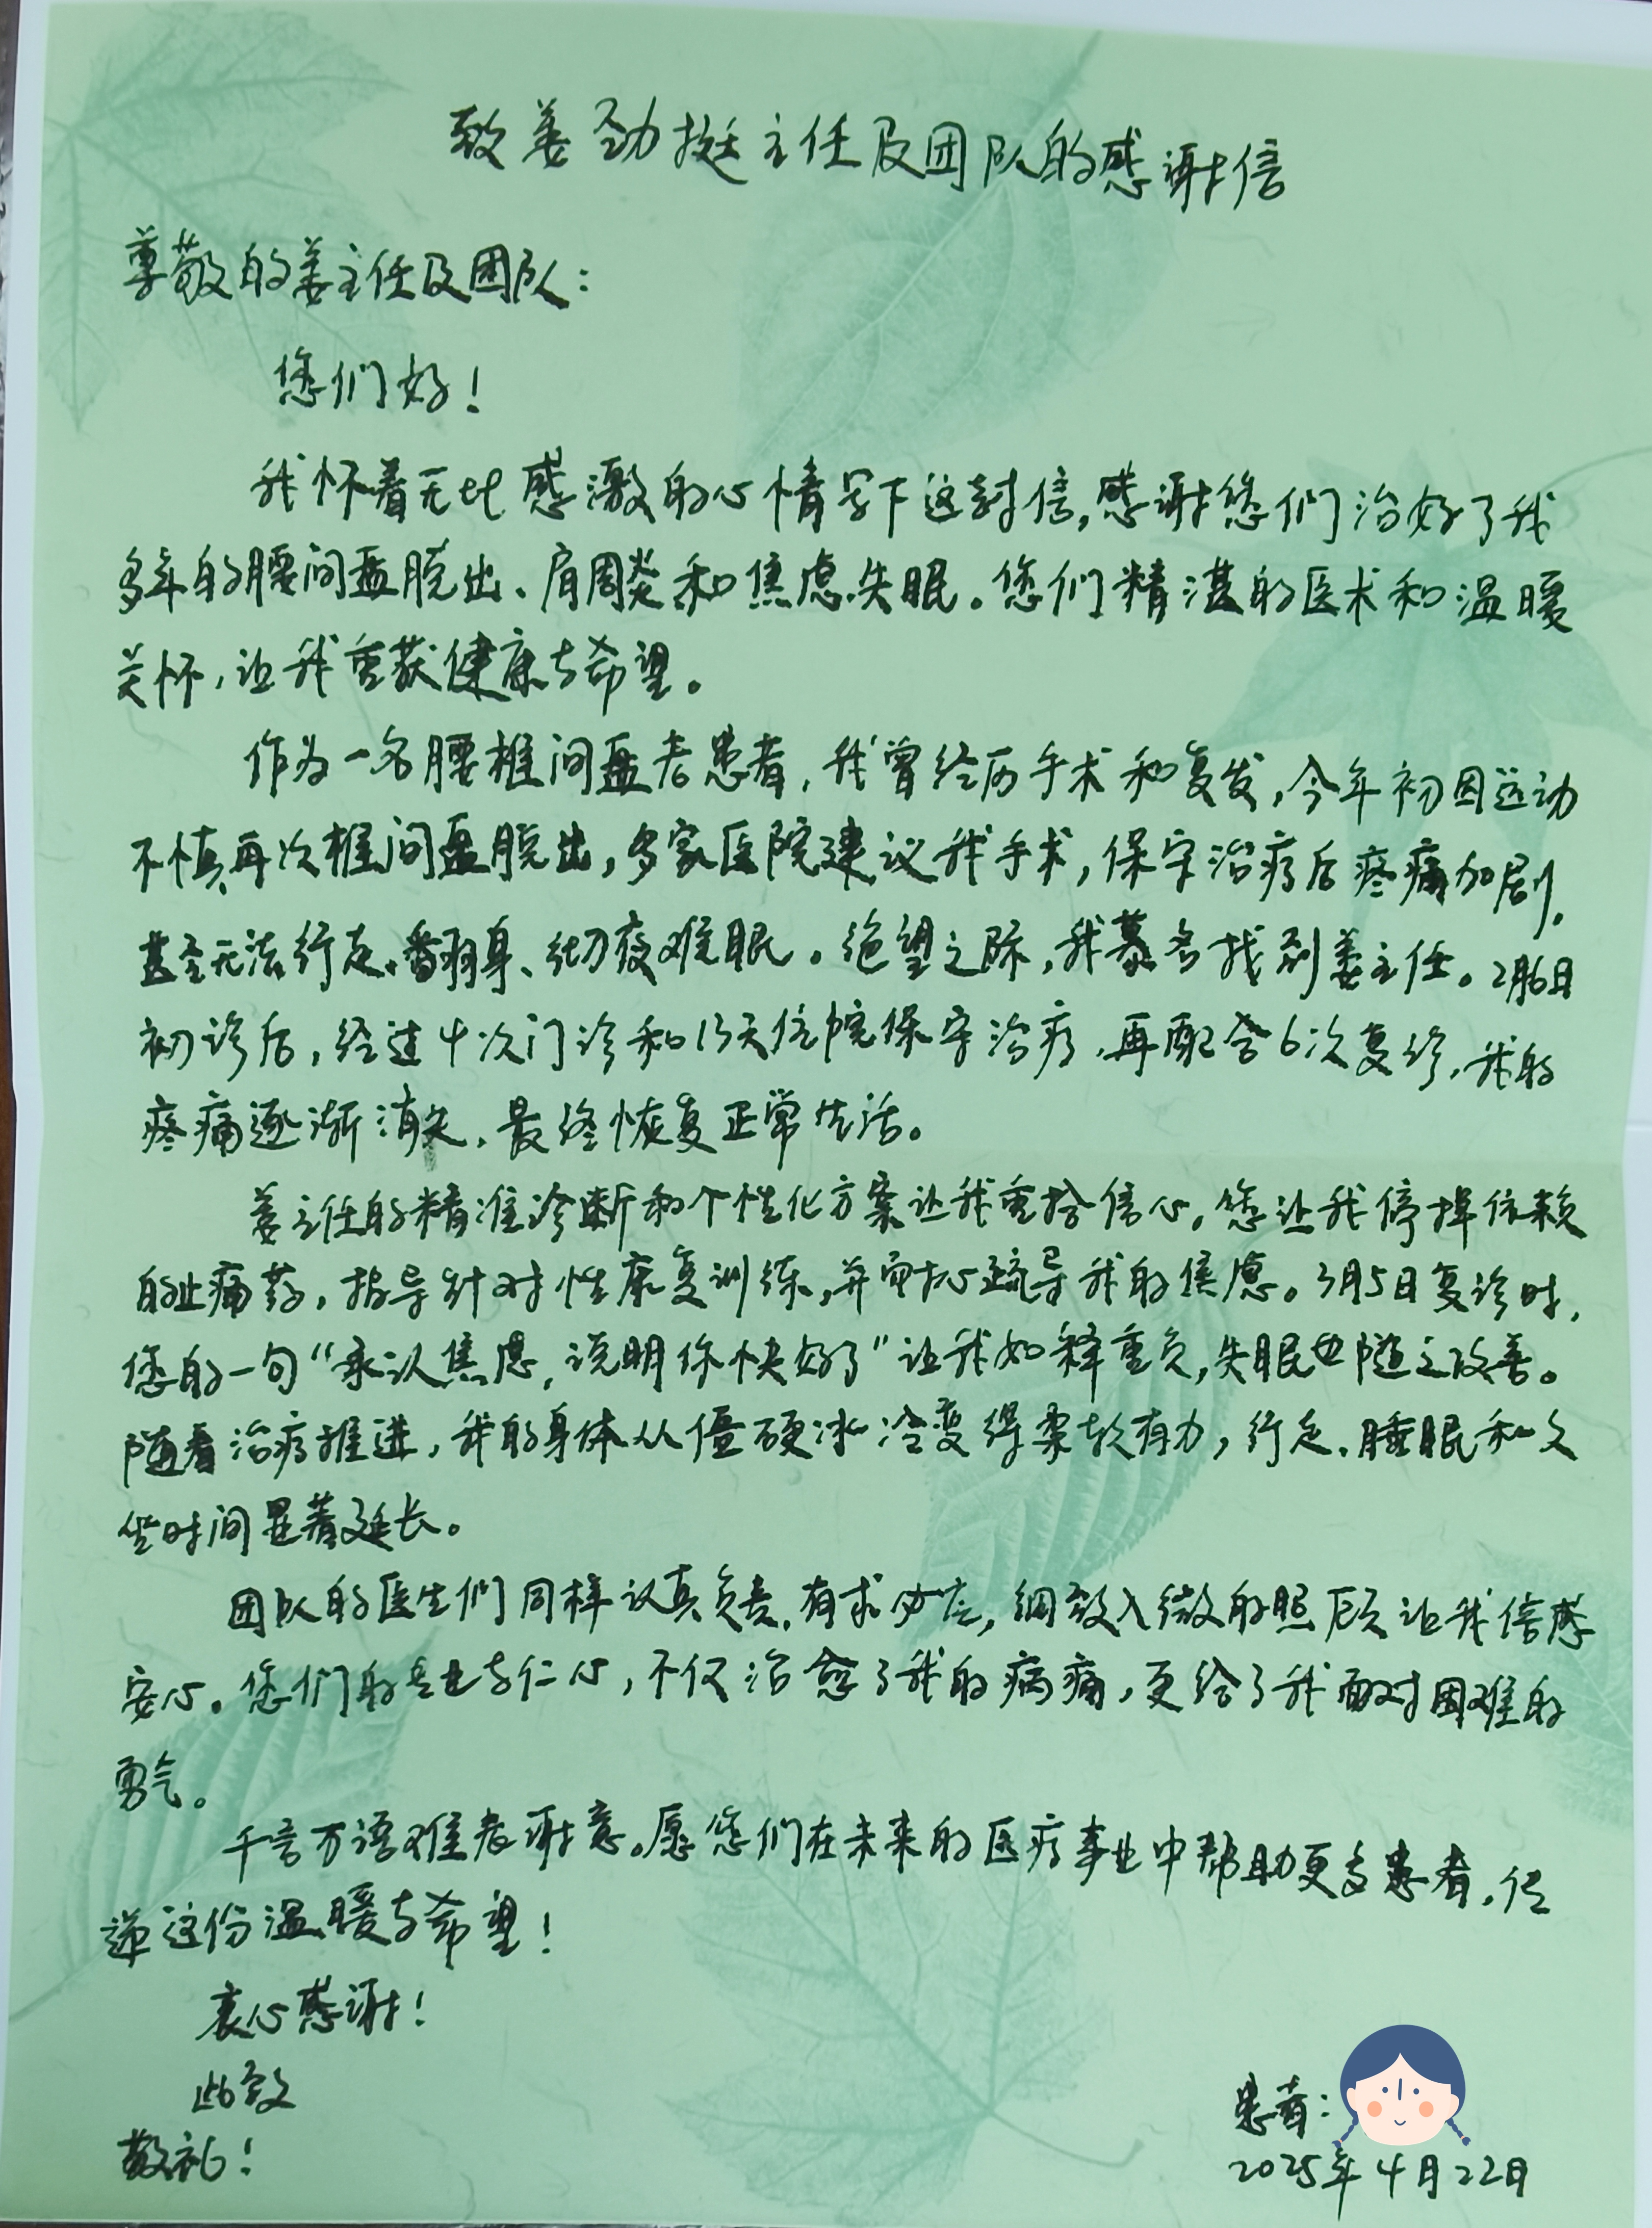 致姜劲挺主任及团队的感谢信
尊敬的姜主任及团队：
您们好！
我怀着无比感激的心情写下这封信，感谢您们治好了我
多年的腰间盘脱出、肩周炎和焦虑失眠。您们精湛的医术和温暖
关怀，让我重获健康与希望。
作为一名腰椎间盘老患者，我曾经历手术和复发，今年初因运动
不慎再次椎间盘脱出，多家医院建议我手术，保守治疗后疼痛加剧，
甚至无法行走、翻身、彻夜难眠。绝望之际，我慕名找到姜主任。2月6日
初诊后，经过4次门诊和13天住院保守治疗，再配合6次复诊，我的
疼痛逐渐消失，最终恢复正常生活。
姜主任的精准诊断和个性化方案让我重拾信心。您让我停掉依赖
的止痛药，指导针对性康复训练，并耐心疏导我的焦虑。3月5日复诊时，
您的一句“承认焦虑，说明你快好了”让我如释重负，失眠也随之改善。
随着治疗推进，我的身体从僵硬冰冷变得柔软有力，行走、睡眠和久
坐时间显著延长。
团队的医生们同样认真负责，有求必应，细致入微的照顾让我倍感
安心。您们的专业与仁心，不仅治愈了我的病痛，更给了我面对困难的
勇气。
千言万语难表谢意。愿您们在未来的医疗事业中帮助更多患者，传
递这份温暖与希望！
衷心感谢！
此致
敬礼！
患者：
2025年4月22日